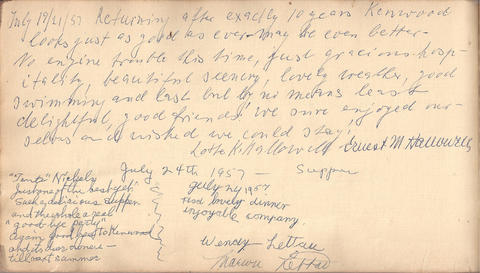 July 19/21/57 Returning after exactly 10 years Kenwood
looks just as good as ever may be even better-
No engine trouble this time, just gracious hosp-
itality, beautiful scenery, lovely weather, good
swimming and last but by no means least
delightful, good friends! We sure enjoyed our-
selves and wished we could stay!
Lotte K. Hallowell Ernest M Hallowell
July 24th 1957 - Supper
"Tante" Nickely
Just one of the best yet!
Such a delicious supper
and the whole a real
"good-bye party"
Again good bye to Kenwood
and its dear owners -
till next summer
July 24 1957
Had lovely dinner
enjoyable company.
Wendy Lettau
Lettau